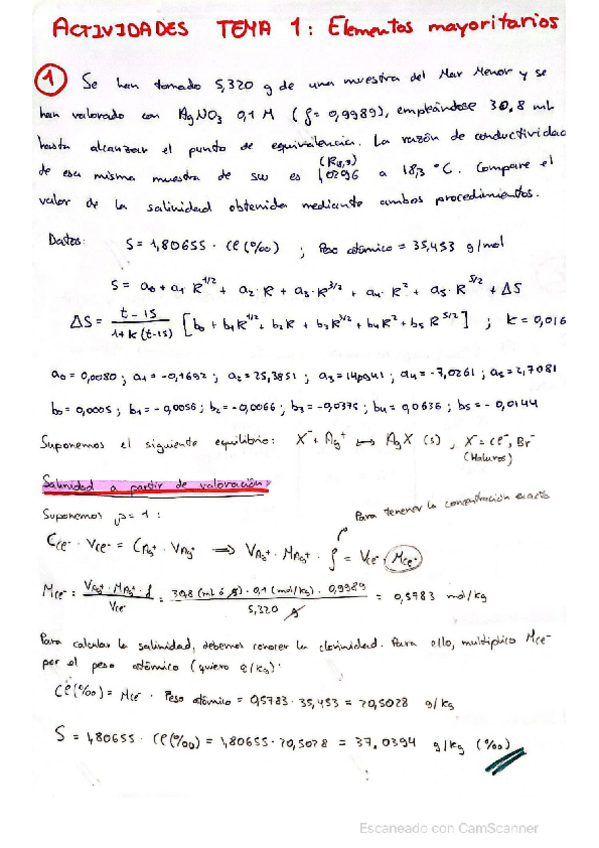 ACTIVIDADES TEMA 1: Elementos mayoritarios
① Se han tomado 5,320 g de una muestra del Mar Menor y se
han valorado con AgNO3 0,1 M (f=0,9989), empleándose 30,8 mL
hasta alcanzar el punto de equivalencia. La razón de conductividad
de esa misma muestra de sw es (R18,3) 1,0296 a 18,3 °C. Compare el
valor de la salinidad obtenida mediante ambos procedimientos.
Datos: S = 1,80655 · Cl(‰) ; Peso atómico = 35,453 g/mol
S = a0 + a1 R^1/2 + a2·R + a3·R^3/2 + a4·R^2 + a5·R^5/2 + ΔS
ΔS = t-15 / 1+k(t-15) [b0 + b1R^1/2 + b2R + b3R^3/2 + b4R^2 + b5R^5/2] ; k = 0,016
a0 = 0,0080 ; a1 = -0,1692 ; a2 = 25,3851 ; a3 = 14,0941 ; a4 = -7,0261 ; a5 = 2,7081
b0 = 0,0005 ; b1 = -0,0056 ; b2 = -0,0066 ; b3 = -0,0375 ; b4 = 0,0636 ; b5 = -0,0144
Suponemos el siguiente equilibrio: X⁻ + Ag⁺ ↔ AgX (s) , X⁻ = Cl⁻, Br⁻
(Haluros)
Salinidad a partir de valoración:
Suponemos ρ = 1 :
Para tenener la concentración exacta
C Cl⁻ · V Cl⁻ = C Ag⁺ · V Ag⁺ ⟹ V Ag⁺ · M Ag⁺ · f = V Cl⁻ · M Cl⁻
M Cl⁻ = V Ag⁺ · M Ag⁺ · f / V Cl⁻ = 30,8 (mL ó g) · 0,1 (mol/kg) · 0,9989 / 5,320 g = 0,5783 mol/kg
Para calcular la salinidad, debemos conocer la clorinidad. Para ello, multiplico M Cl⁻
por el peso atómico (quiero g/kg):
Cl(‰) = M Cl⁻ · Peso atómico = 0,5783 · 35,453 = 20,5028 g/kg
S = 1,80655 · Cl(‰) = 1,80655 · 20,5028 = 37,0394 g/kg (‰)
Escaneado con CamScanner